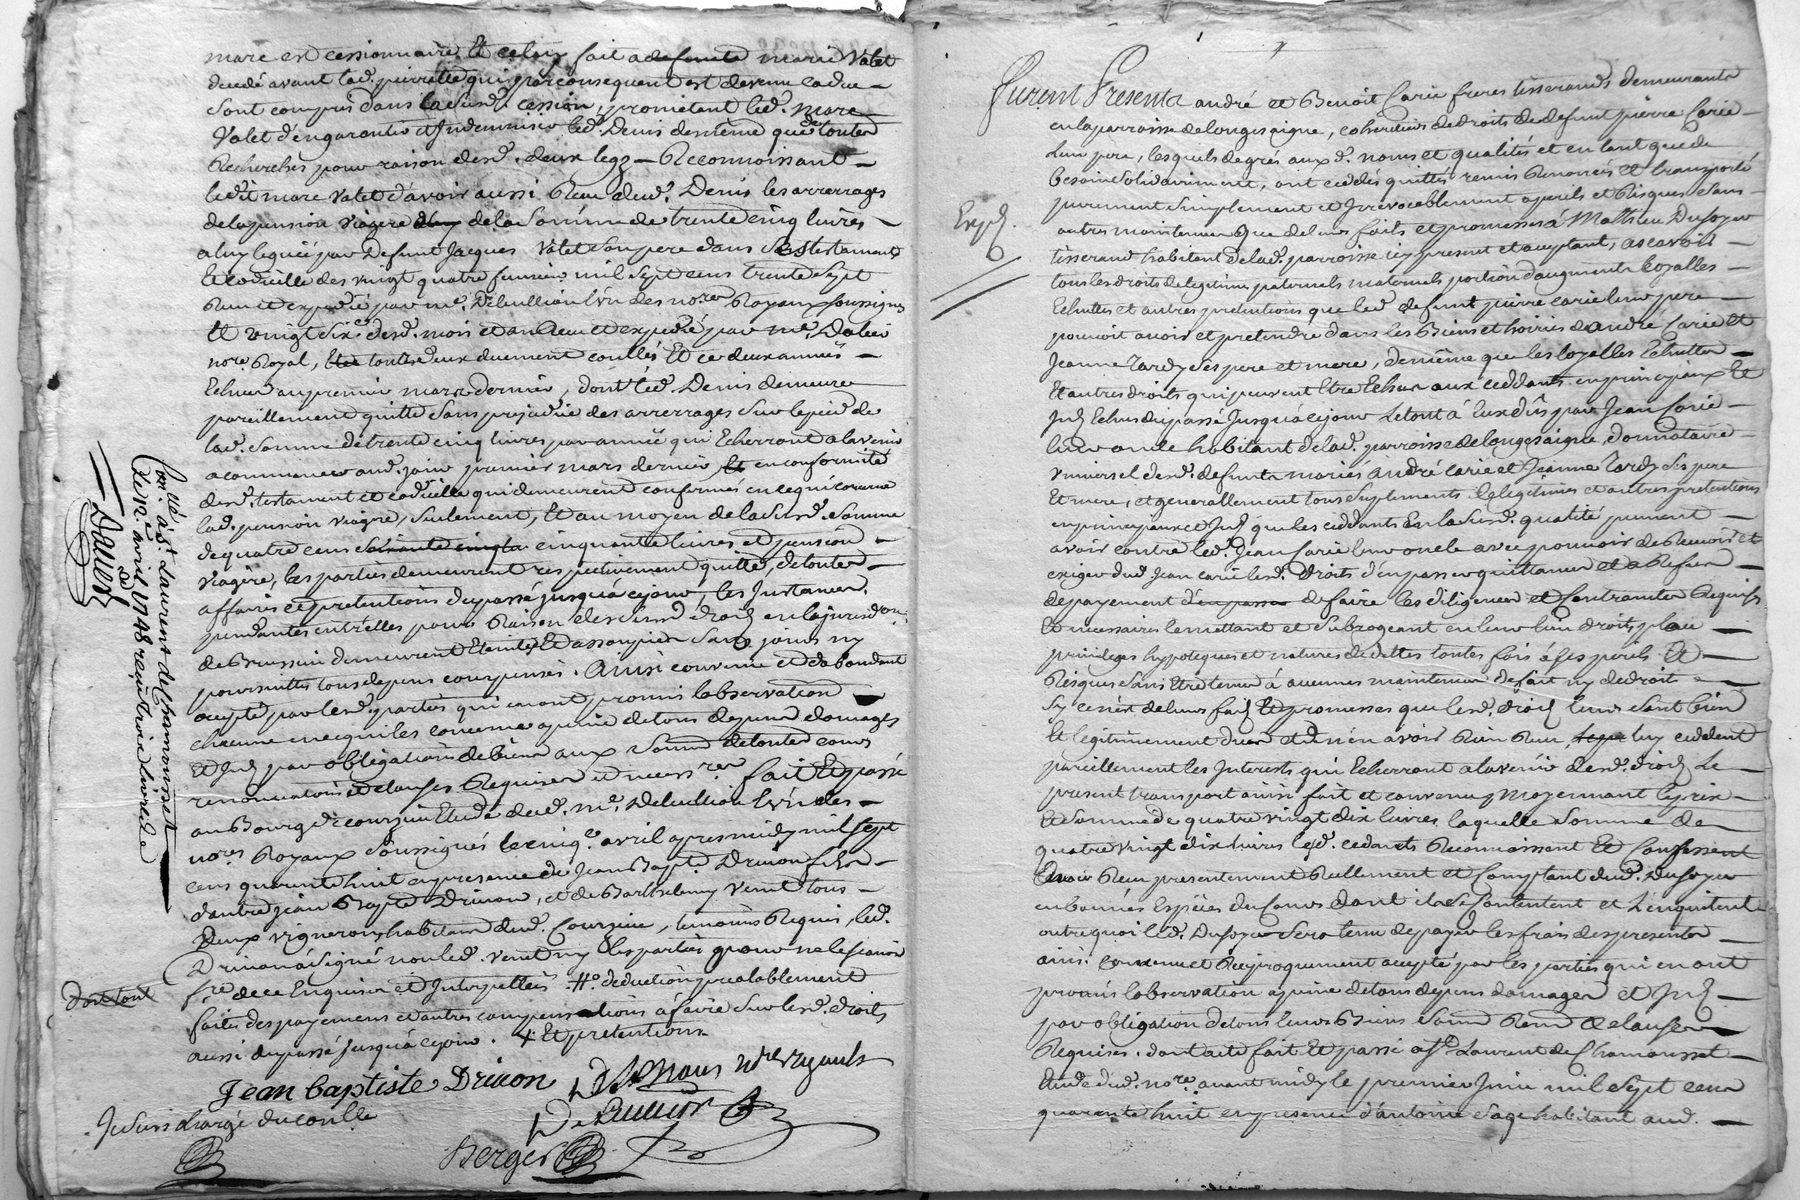 mare est cessionnaire Et celuy fait a defunte marie Valet
decedé avant lad. pierrette qui par consequent est devenu caduc
sont compris dans la susd. cession, prometant led. mare
Valet d'en garantir et Indemniser led. Denis de meme que de toutes
Recherches pour raison desd. deux legz – Reconnoissant –
ledit mare valet d'avoir aussi Reçu dud. Denis les arrerages
de la pension viagere de la somme de trente cinq livres –
a luy leguée par Defunt Jacques Valet son pere dans Ses testament
Et codicille des vingt quatre fevrier mil sept cens trente sept
Reçu et expedié par me. Delucllion L'un des nores Royaux soussignés
Et vingt six desd. mois et an Reçu et expedié par me. Dalier
nore Royal, toutes deux duement conllés Et ce deux années –
Echues au premier mars dernier, dont led. Denis demeure
pareillement quitte sans prejudice des arrerages sur le pied de
lad. somme de trente cinq livres par année qui Echerront a lavenir
a commencer aud. jour premier mars dernier, en conformité
desd. testament et codicille qui demeurent confirmés en ce qui concerne
lad. pension viagere, seulement, Et au moyen de la susd. somme
de quatre cens soixante cinq cinquante livres et pension –
viagere, les parties demeurent respectivement quittes, de toutes –
affaires et pretentions du passé jusqu'a ce jour, les Instances
pendantes entr'elles pour Raison desd. droits en la juridon
de Brussieu demeurent Eteintes Et assoupies sans jamais ny
poursuittes tous depens compensés. Ainsi convenu et d'abondant
accepté par lesd. parties qui en ont promis l'observation
chacune en ce qui les concerne a peine de tous depens domages
Et Jnt. par obligation de biens aux soumd. de toutes cours
renonciations et clauses Requises et necessres fait Et passé
au Bourg de courzieu Etude dud. me. Delucllion L'un des –
nores Royaux soussignés le cinqe. avril apres midy mil sept
cens quarante huit en presence de Jean Bapt. Drivon fils
d'autre Jean Bapte Drivon, et de Barthelemy venet tous –
Deux vignerons habitans dud. Courzieu, temoins Requis, led.
Drivon a signé non led. venet ny les parties pour ne le scavoir
fre de ce Enquises et Interpellées #o deduction prealablement
faite des payemens et autres compensations a faire sur lesd. droits
aussi du passé jusqu'a ce jour. + Et pretentions
Jean baptiste Drivon
Je suis chargé du conlle
Berger
Conllé a St. Laurent de Chamousset
le 12e avril 1748 reçu trois livres
Dalier
Expd.
Furent Presents andré et Benoit Carié freres tisserands demeurants
en la parroisse de longesaigne, coheritiers de droits de defunt pierre Carié –
Leur pere, lesquels de gré aux d. noms et qualités et en tant que de
besoin solidairement, ont ceddés quittés remis Renoncés et transporté
purement simplement et Irrevocablement a perils et Risques sans –
autres maintenue que de leurs faits et promesses a Mathieu Dufoyer
tisserand habitant de lad. parroisse icy present et acceptant, a scavoir –
tous les droits de legitime paternels maternels portion d'augment loyalles –
Echuttes et autres pretentions que led. defunt pierre carié leur pere –
pouvoit avoir et pretendre dans les Biens et hoiries d'andré Carié Et
Jeanne Tardy ses pere et mere, de même que les loyalles Echuttes –
Et autres droits qui peuvent Etre Echus aux ceddants en principaux Et
Jnt. Echus du passé Jusqu'a ce jour Le tout a Eux dûs par Jean Carié –
leur oncle habitant de lad. parroisse de longesaigne donnataire –
universel desd. defunts mariés andré carié et Jeanne Tardy ses pere
Et mere, et generallement tous suplements de legitimes et autres pretentions
en principaux et Jnt. que les ceddants En la susd. qualité peuvent –
avoir contre led. Jean Carié leur oncle avec pouvoir de Recevoir et
exiger dud. Jean carié lesd. Droits d'en passer quittances et a Refus
de payement de faire les diligences et contraintes Requises
Et necessaires le mettant et subrogeant en leur lieu droits, place –
privileges hypoteques et natures de dettes toutes fois a ses perils Et –
Risques sans Etre tenus a aucunes maintenue de fait ny de droit –
sy ce n'est de leurs faits Et promesses que lesd. droits leurs sont bien
Et legitimement dues et de n'en avoir Rien Reçu, luy ceddent
pareillement les Interests qui Echerront a lavenir desd. droits Le –
present transport ainsi fait et convenu, Moyennant le prix –
Et somme de quatre vingt dix livres laquelle somme de –
quatre vingt dix livres lesd. cedants Reconnoissent Et Confessent
Reçu presentement Reellement et Comptant dud. Dufoyer
en bonnes Espèces du Cours dont ils se Contentent et L'enquittent
outre quoi led. Dufoyer sera tenu de payer les frais des presentes –
ainsi convenu et Reciproquement accepté par les parties qui en ont
promis l'observation a peine de tous depens domages et Jnt. –
par obligation de tous leurs Biens soumd. Rend. & clauses
Requises. dont acte fait Et passé a St. Laurent de Chamousset –
Etude dud. nore. avant midy le premier Juin mil sept cens
quarante huit en presence d'antoine Sage habitant aud. –